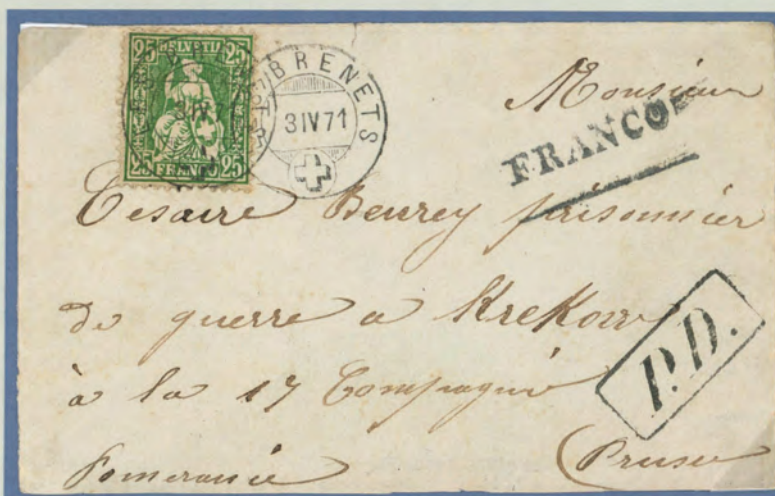 25 HELVETIA 25
25 FRANCO 25
BRENETS
3 IV 71
Monsieur
FRANCO
Cesaire Beurey prisonnier
de guerre a Krekow
à la 17 Compagnie
P.D.
Pomeranie (Prusse